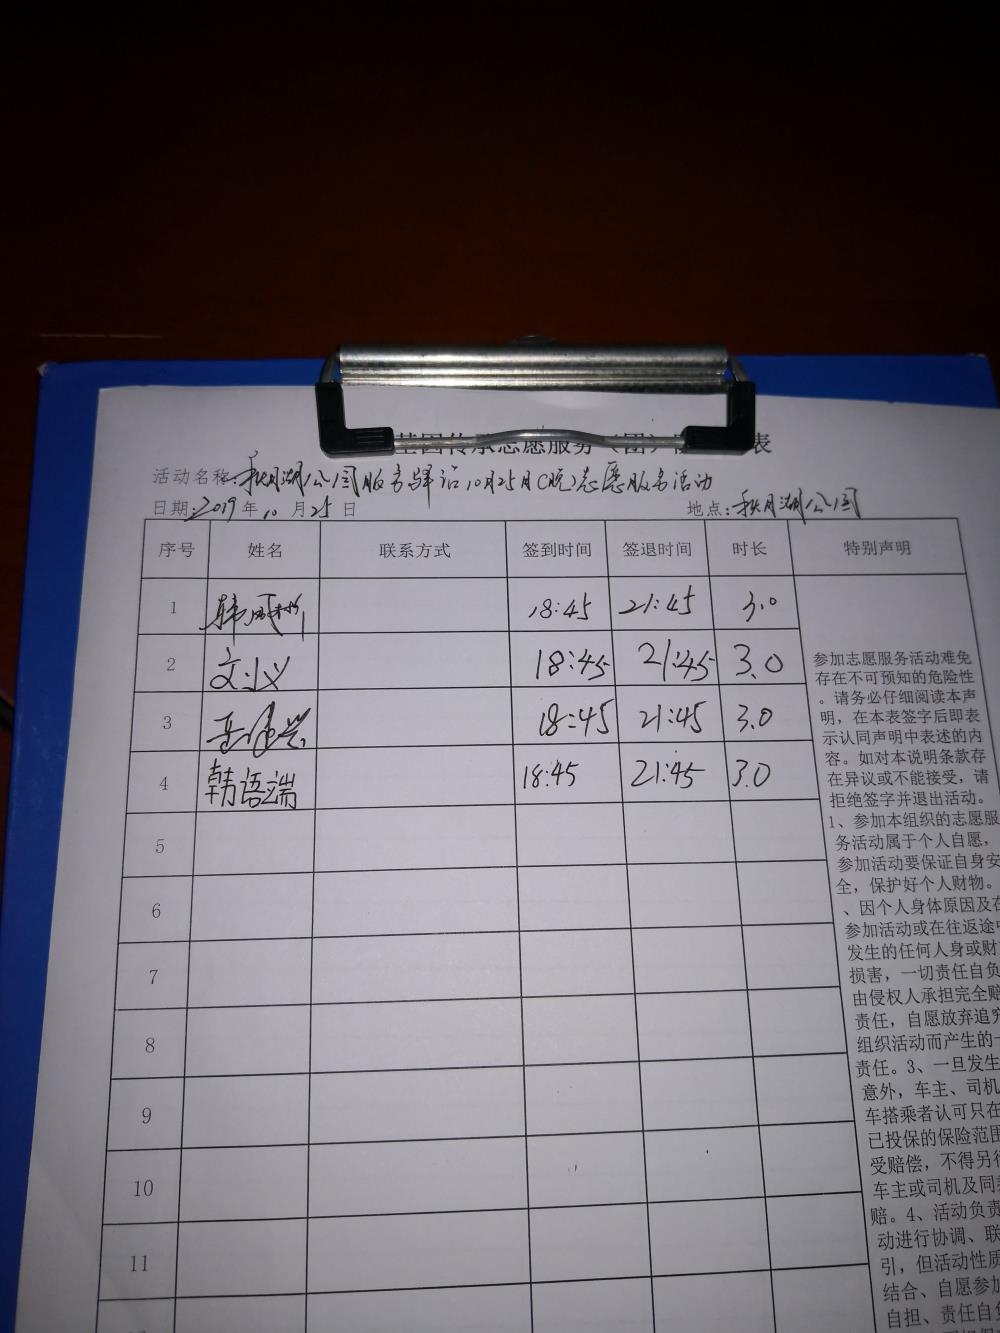 基因传承志愿服务（团）表
活动名称:秋月湖公园服务驿站10月25日(晚)志愿服务活动
日期:2019年10月25日 地点:秋月湖公园
序号 姓名 联系方式 签到时间 签退时间 时长 特别声明
1 18:45 21:45 3.0
2 18:45 21:45 3.0
3 18:45 21:45 3.0
4 韩语端 18:45 21:45 3.0
5
6
7
8
9
10
11
参加志愿服务活动难免
存在不可预知的危险性
。请务必仔细阅读本声
明，在本表签字后即表
示认同声明中表述的内
容。如对本说明条款存
在异议或不能接受，请
拒绝签字并退出活动。
1、参加本组织的志愿服
务活动属于个人自愿，
参加活动要保证自身安
全，保护好个人财物。
、因个人身体原因及在
参加活动或在往返途中
发生的任何人身或财
损害，一切责任自负
由侵权人承担完全赔
责任，自愿放弃追究
组织活动而产生的一
责任。3、一旦发生
意外，车主、司机
车搭乘者认可只在
已投保的保险范围
受赔偿，不得另行
车主或司机及同乘
赔。4、活动负责
动进行协调、联
引，但活动性质
结合、自愿参加
自担、责任自负